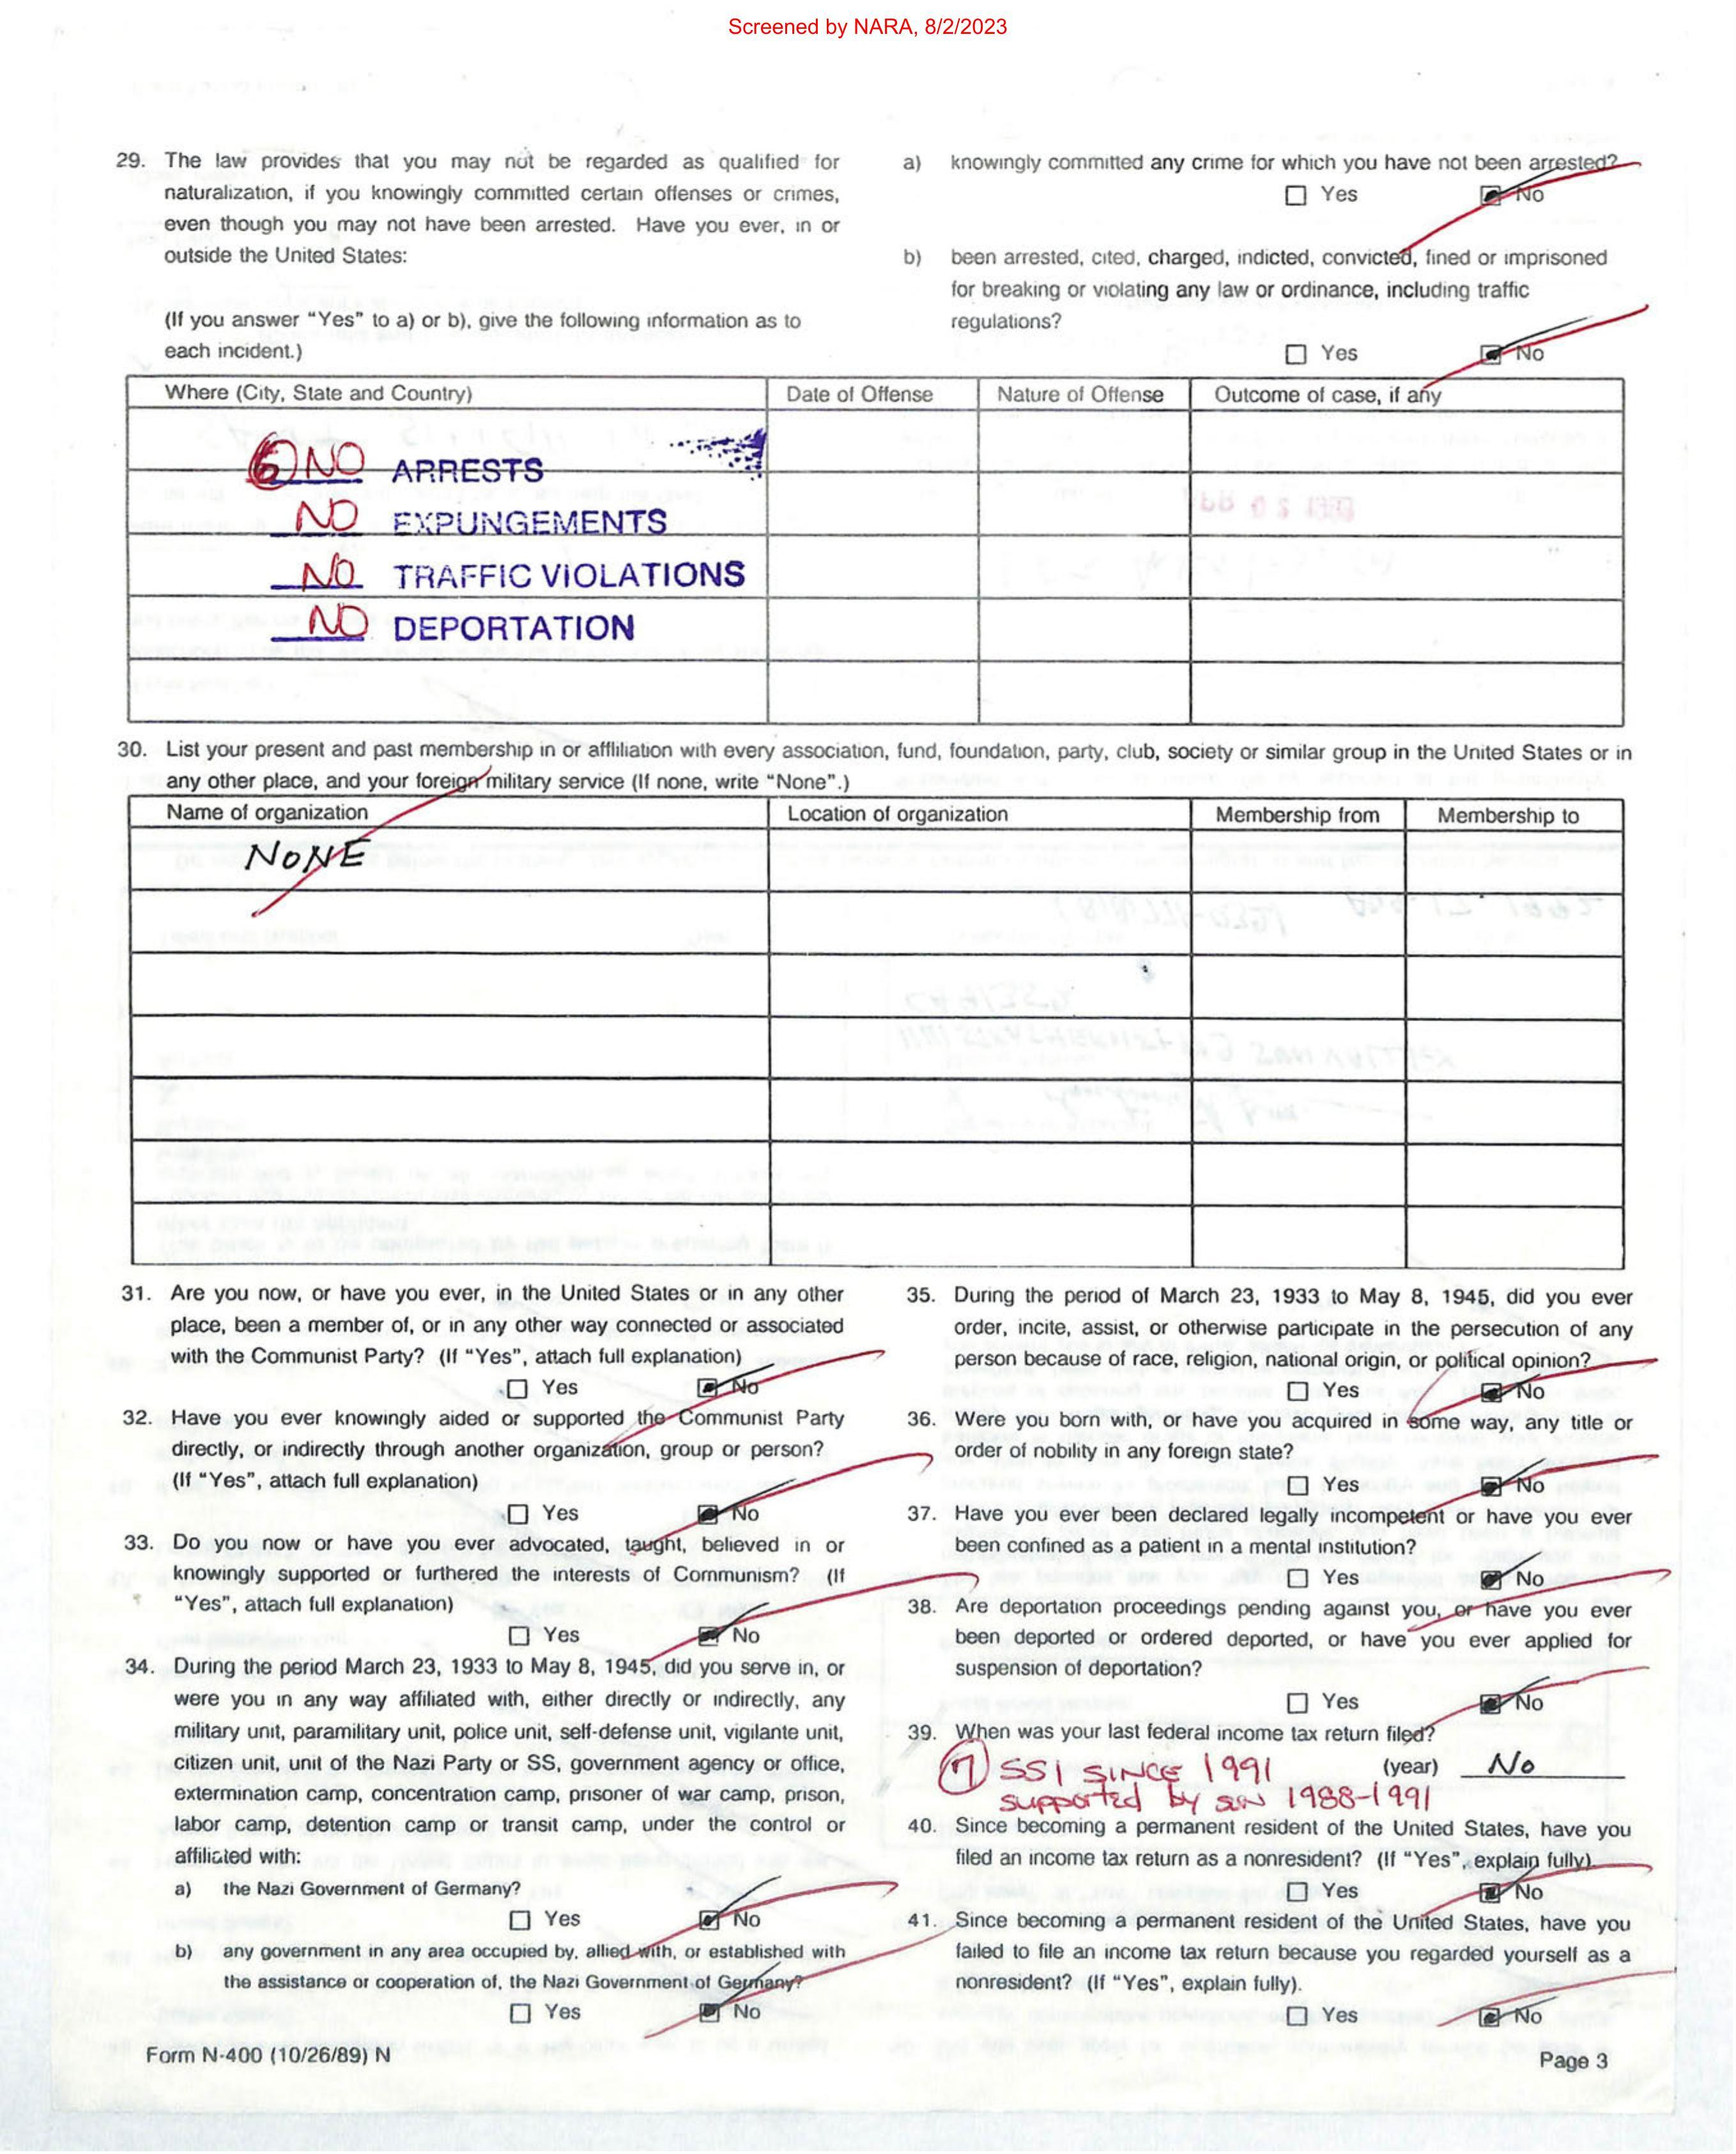 Screened by NARA, 8/2/2023
29. The law provides that you may not be regarded as qualified for
naturalization, if you knowingly committed certain offenses or crimes,
even though you may not have been arrested. Have you ever, in or
outside the United States:
(If you answer "Yes" to a) or b), give the following information as to
each incident.)
a) knowingly committed any crime for which you have not been arrested?
Yes No
b) been arrested, cited, charged, indicted, convicted, fined or imprisoned
for breaking or violating any law or ordinance, including traffic
regulations?
Yes No
Where (City, State and Country) Date of Offense Nature of Offense Outcome of case, if any
6 NO ARRESTS
NO EXPUNGEMENTS
NO TRAFFIC VIOLATIONS
NO DEPORTATION
30. List your present and past membership in or affliliation with every association, fund, foundation, party, club, society or similar group in the United States or in
any other place, and your foreign military service (If none, write "None".)
Name of organization Location of organization Membership from Membership to
NONE
31. Are you now, or have you ever, in the United States or in any other
place, been a member of, or in any other way connected or associated
with the Communist Party? (If "Yes", attach full explanation)
Yes No
32. Have you ever knowingly aided or supported the Communist Party
directly, or indirectly through another organization, group or person?
(If "Yes", attach full explanation)
Yes No
33. Do you now or have you ever advocated, taught, believed in or
knowingly supported or furthered the interests of Communism? (If
"Yes", attach full explanation)
Yes No
34. During the period March 23, 1933 to May 8, 1945, did you serve in, or
were you in any way affiliated with, either directly or indirectly, any
military unit, paramilitary unit, police unit, self-defense unit, vigilante unit,
citizen unit, unit of the Nazi Party or SS, government agency or office,
extermination camp, concentration camp, prisoner of war camp, prison,
labor camp, detention camp or transit camp, under the control or
affiliated with:
a) the Nazi Government of Germany?
Yes No
b) any government in any area occupied by, allied with, or established with
the assistance or cooperation of, the Nazi Government of Germany?
Yes No
35. During the period of March 23, 1933 to May 8, 1945, did you ever
order, incite, assist, or otherwise participate in the persecution of any
person because of race, religion, national origin, or political opinion?
Yes No
36. Were you born with, or have you acquired in some way, any title or
order of nobility in any foreign state?
Yes No
37. Have you ever been declared legally incompetent or have you ever
been confined as a patient in a mental institution?
Yes No
38. Are deportation proceedings pending against you, or have you ever
been deported or ordered deported, or have you ever applied for
suspension of deportation?
Yes No
39. When was your last federal income tax return filed?
7 SSI SINCE 1991 (year) No
supported by son 1988-1991
40. Since becoming a permanent resident of the United States, have you
filed an income tax return as a nonresident? (If "Yes", explain fully)
Yes No
41. Since becoming a permanent resident of the United States, have you
failed to file an income tax return because you regarded yourself as a
nonresident? (If "Yes", explain fully).
Yes No
Form N-400 (10/26/89) N
Page 3